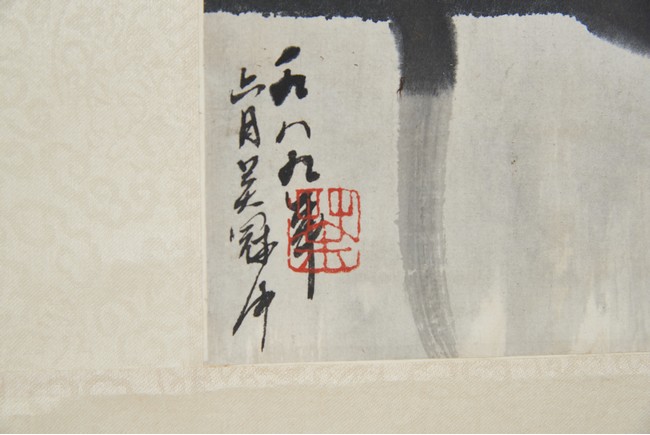 一九八九年
六月吴冠中